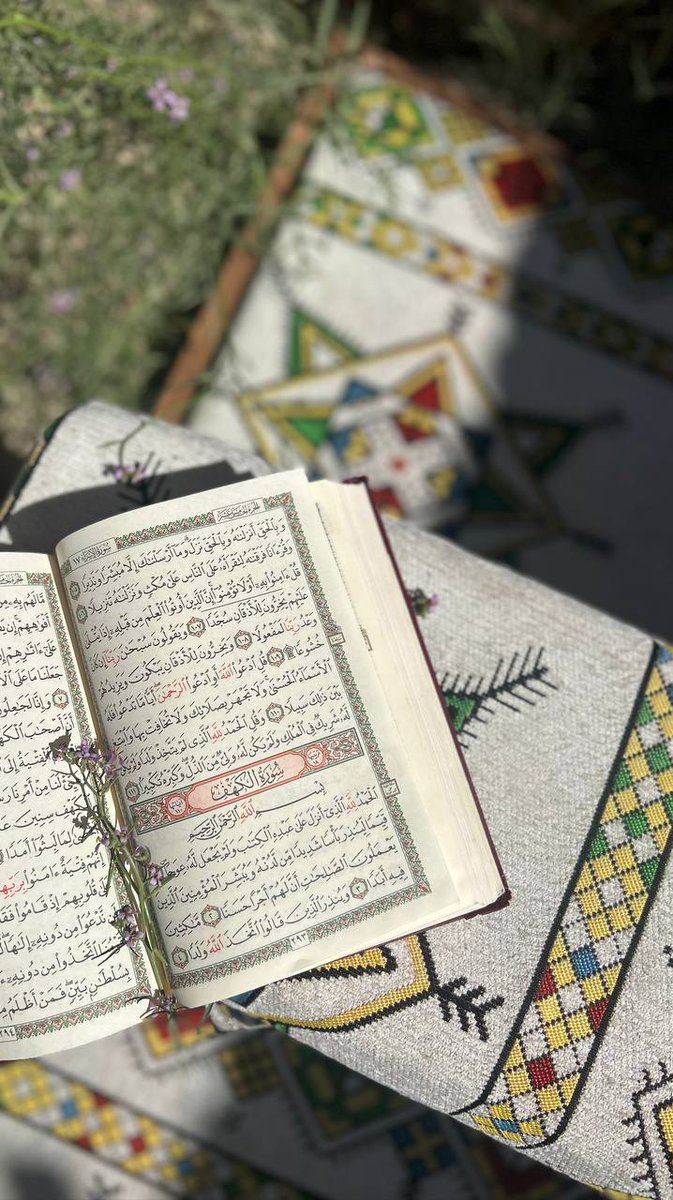 سُورَةُ الإِسْرَاءِ ١٧
وَبِٱلْحَقِّ أَنزَلْنَٰهُ وَبِٱلْحَقِّ نَزَلَ وَمَآ أَرْسَلْنَٰكَ إِلَّا مُبَشِّرًا وَنَذِيرًا ١٠٥
وَقُرْءَانًا فَرَقْنَٰهُ لِتَقْرَأَهُۥ عَلَى ٱلنَّاسِ عَلَىٰ مُكْثٍ وَنَزَّلْنَٰهُ تَنزِيلًا ١٠٦
قُلْ ءَامِنُوا۟ بِهِۦٓ أَوْ لَا تُؤْمِنُوٓا۟ إِنَّ ٱلَّذِينَ أُوتُوا۟ ٱلْعِلْمَ مِن قَبْلِهِۦٓ إِذَا يُتْلَىٰ
عَلَيْهِمْ يَخِرُّونَ لِلْأَذْقَانِ سُجَّدًا ١٠٧ وَيَقُولُونَ سُبْحَٰنَ رَبِّنَآ إِن كَانَ
وَعْدُ رَبِّنَا لَمَفْعُولًا ١٠٨ وَيَخِرُّونَ لِلْأَذْقَانِ يَبْكُونَ وَيَزِيدُهُمْ
خُشُوعًا ۩ ١٠٩ قُلِ ٱدْعُوا۟ ٱللَّهَ أَوِ ٱدْعُوا۟ ٱلرَّحْمَٰنَ أَيًّا مَّا تَدْعُوا۟ فَلَهُ
ٱلْأَسْمَآءُ ٱلْحُسْنَىٰ وَلَا تَجْهَرْ بِصَلَاتِكَ وَلَا تُخَافِتْ بِهَا وَٱبْتَغِ
بَيْنَ ذَٰلِكَ سَبِيلًا ١١٠ وَقُلِ ٱلْحَمْدُ لِلَّهِ ٱلَّذِى لَمْ يَتَّخِذْ وَلَدًا وَلَمْ يَكُن
لَّهُۥ شَرِيكٌ فِى ٱلْمُلْكِ وَلَمْ يَكُن لَّهُۥ وَلِىٌّ مِّنَ ٱلذُّلِّ وَكَبِّرْهُ تَكْبِيرًۢا ١١١
سُورَةُ الكَهْفِ
بِسْمِ ٱللَّهِ ٱلرَّحْمَٰنِ ٱلرَّحِيمِ
ٱلْحَمْدُ لِلَّهِ ٱلَّذِىٓ أَنزَلَ عَلَىٰ عَبْدِهِ ٱلْكِتَٰبَ وَلَمْ يَجْعَل لَّهُۥ عِوَجَا ١
قَيِّمًا لِّيُنذِرَ بَأْسًا شَدِيدًا مِّن لَّدُنْهُ وَيُبَشِّرَ ٱلْمُؤْمِنِينَ ٱلَّذِينَ
يَعْمَلُونَ ٱلصَّٰلِحَٰتِ أَنَّ لَهُمْ أَجْرًا حَسَنًا ٢ مَّٰكِثِينَ
فِيهِ أَبَدًا ٣ وَيُنذِرَ ٱلَّذِينَ قَالُوا۟ ٱتَّخَذَ ٱللَّهُ وَلَدًا ٤
٢٩٣
مَّا لَهُم بِهِۦ مِنْ
أَفْوَٰهِهِمْ إِن
عَلَىٰٓ ءَاثَٰرِهِمْ إِن
جَعَلْنَا مَا عَلَى ٱلْأَ
٧ وَإِنَّا لَجَٰعِلُونَ
أَنَّ أَصْحَٰبَ ٱلْكَهْ
ٱلْفِتْيَةُ إِلَى
لَنَا مِنْ أَمْرِنَا رَ
سِنِينَ عَ
لِمَا لَبِثُوٓا۟ أَمَدًا
إِنَّهُمْ فِتْيَةٌ ءَامَنُوا۟ بِرَبِّهِ
عَلَىٰ قُلُوبِهِمْ إِذْ قَامُوا۟ فَقَا
لَن نَّدْعُوَا۟ مِن دُونِهِۦٓ إِلَٰهًا
قَوْمُنَا ٱتَّخَذُوا۟ مِن دُونِهِۦٓ
بِسُلْطَٰنٍۭ بَيِّنٍ فَمَنْ أَظْلَمُ مِ
٢٩٤